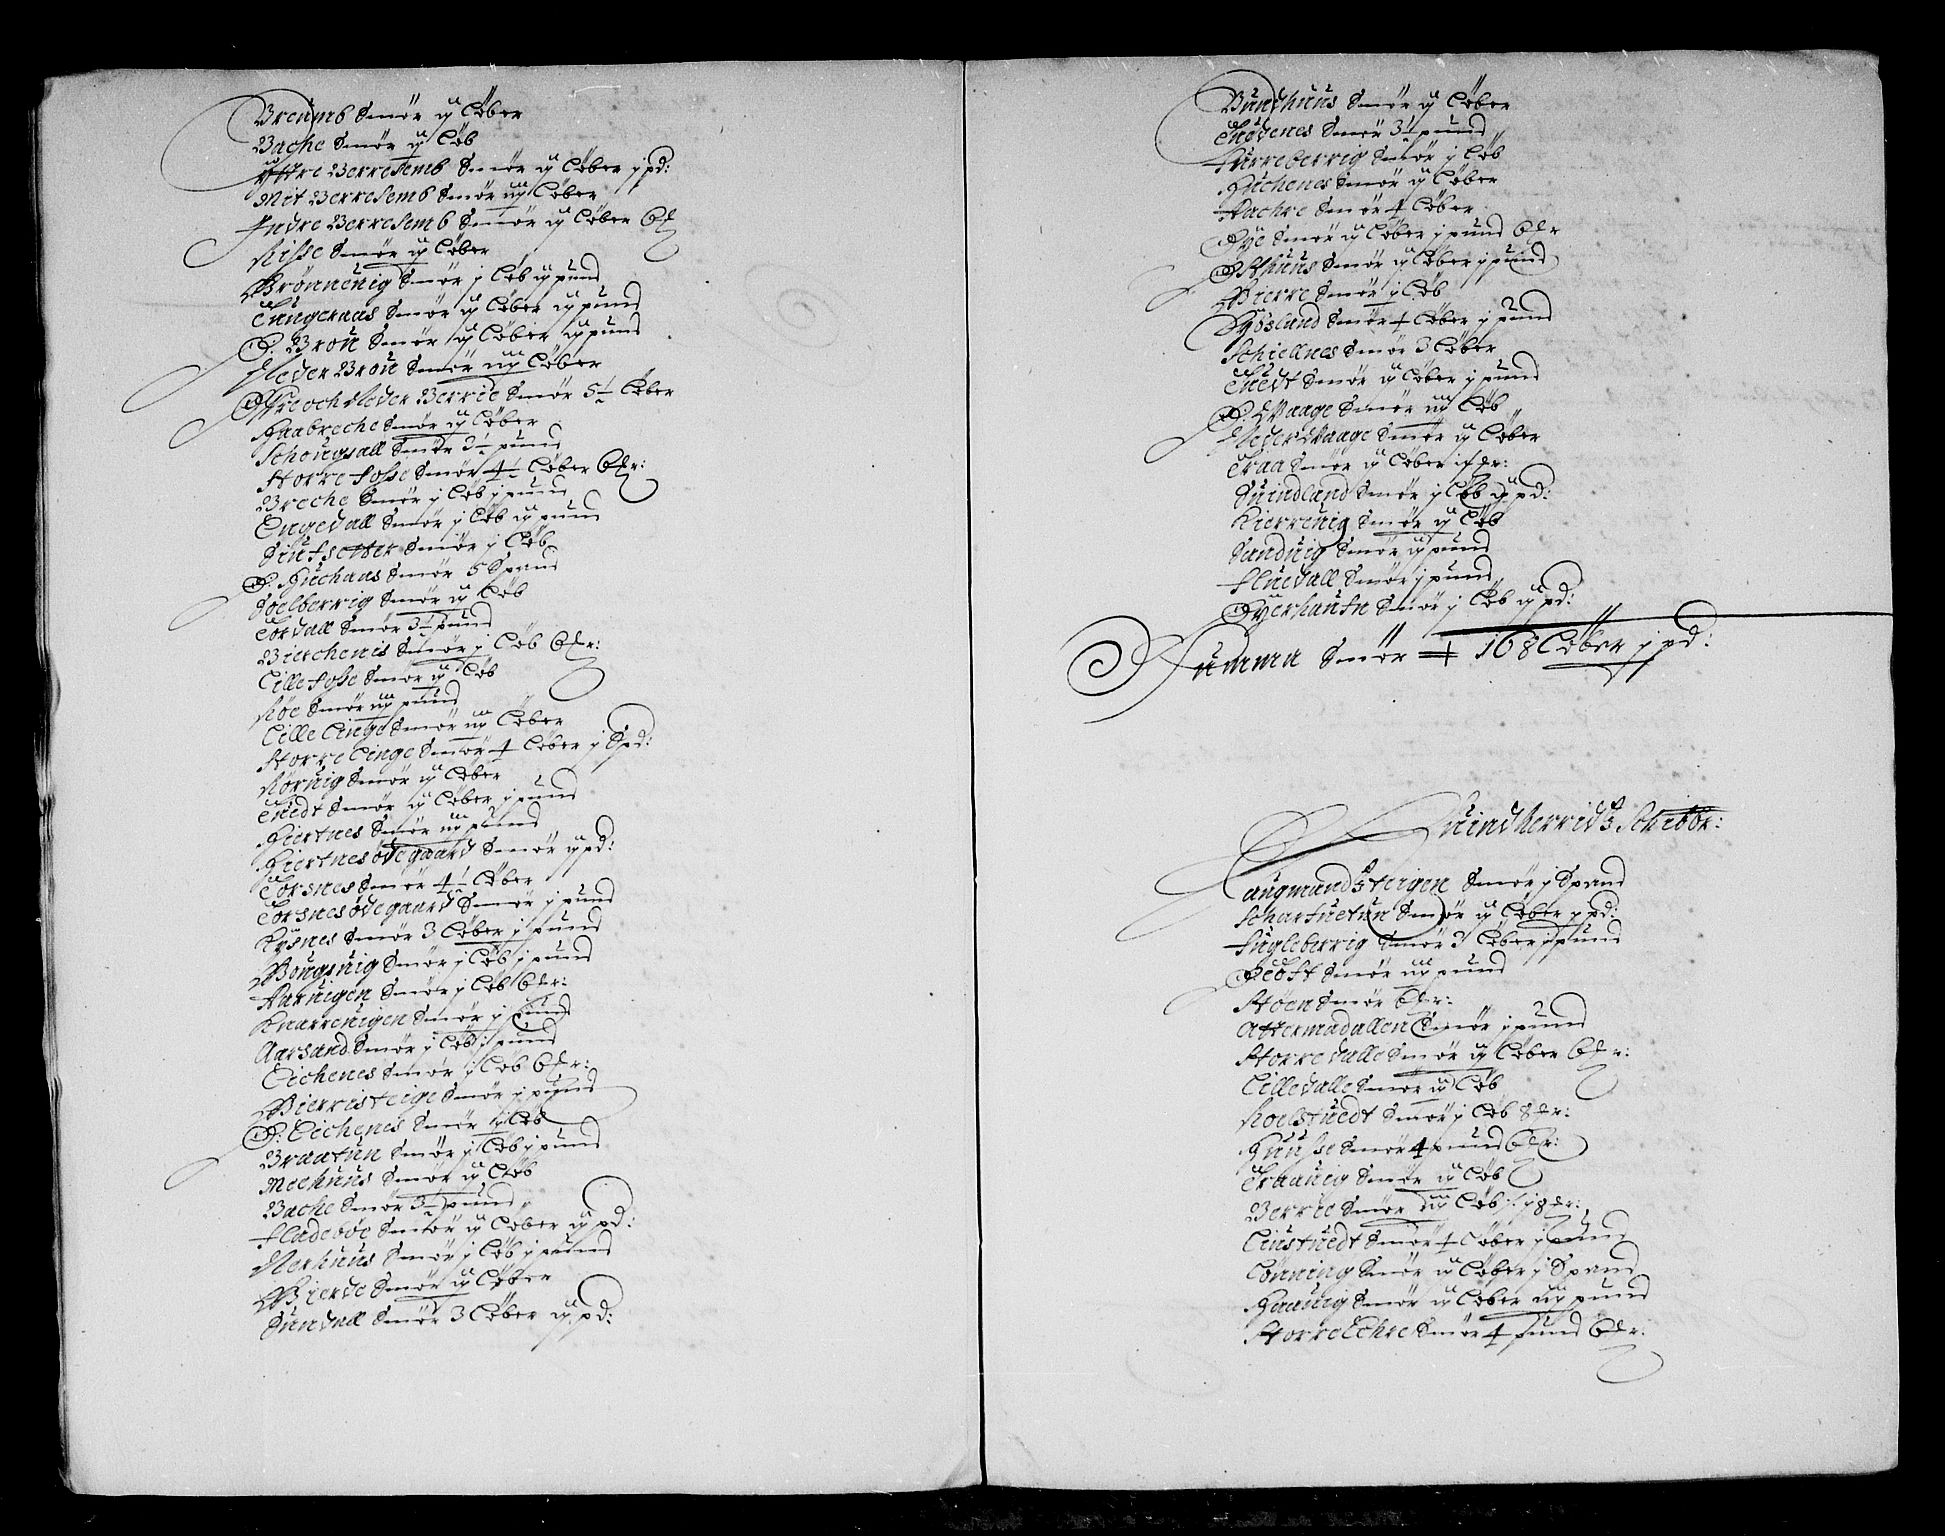 Breumb Smør ij Løber
Bache Smør ij Løb
Yttre Berresemb Smør ij Løber j pd:
Mit Berresemb Smør iij Løber
Indre Berresemb Smør ij Løber
Risse Smør ij Løber
Brönnenig Smør j Løb ij pund
Tungeraas Smør ij Løber ij pund
O: Brou Smør ij Løber ij pund
Neder Brou Smør iij Løber
Øfre och Neder Berrie Smør 5½ Løber
Haabreche Smør ij Løber
Schougsall Smør 3½ pund
Storre fosse Smør 4½ Løber
Breche Smør j Løb j pund
Engedall Smør j Løb ij pund
Smør j Løb
O: Smør 5 Spand
Soelberrig Smør ij Løb
Tordall Smør 3½ pund
Bierchenis Smør j Løb
Lille fosse Smør ij Løb
Røe Smør iij pund
Lille Linge Smør iij Løber
Storre Linge Smør 4 Løber j Spd:
Rørnig Smør ij Løber
Tuedt Smør ij Løber j pund
Hiertnes Smør iij pund
Hiertnes ødegaard Smør ij pd:
Torsnes Smør 4½ Løber
Torsnes ødegaard Smør j pund
Kysnes Smør 3 Løber j pund
Bougsuig Smør j Løb j pund
Aaruigen Smør j Løb
Knarreuigen Smør j pund
Aarsand Smør j Løb j pund
Eichenes Smør j Løb
Bierristeige Smør j pund
O: Eichenes Smør ij Løb
Braatun Smør j Løb j pund
Meehuus Smør ij Løb
Bache Smør 3½ pund
Fladebøe Smør ij Løber ij pd:
Nerhuus Smør j Løb j pund
Bierde Smør ij Løber
Sundall Smør 3 Løber ij pd:
Bundhuus Smør ij Løber
Smør 3½ pund
Furreberrig Smør j Løb
Smør ij Løber
Aachre Smør 4 Løber
Øye Smør ij Løber j pund
Østhuus Smør ij Løber j pund
Bierre Smør j Løb
Smør 4 Løber j pund
Schiellnes Smør 3 Løber
Tuedt Smør ij Løber j pund
O: Waage Smør iij Løb
Neder Waage Smør ij Løber
Traa Smør ij Løber
Suindland Smør j Løb ij pd:
Kierreuig Smør ij Løb
Sanduig Smør ij pund
Fluedall Smør j pund
Smør j Løb ij pd:
Summa Smør 168 Løber j pd:
Quindherrids Schibbr:
Laugmandsteigen Smør j Spand
Smør ij Løber j pd:
Fugleberrig Smør 3 Løber j pund
Smør iij pund
Støen Smør
Attermadallen Smør j pund
Storre dalle Smør ij Løber
Lille dalle Smør ij Løb
Roelstuedt Smør j Løb
Huusse Smør 4 pund
Traauig Smør ij Løb
Berrie Smør
Liustuedt Smør 4 Løber j pund
Lønning Smør ij Løber j Spand
Haauig Smør ij Løber iij pund
Storre Echre Smør 4 pund